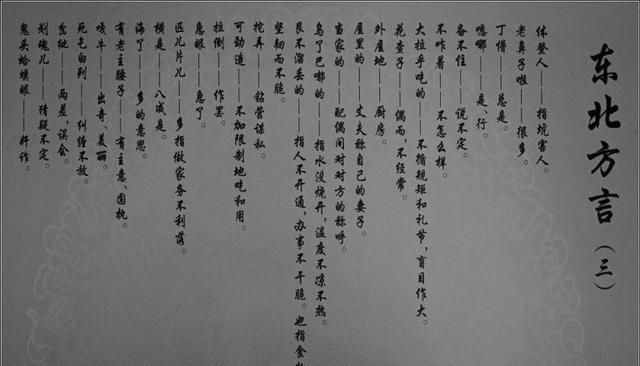 东北方言（三）
休登人——指坑害人。
老鼻子啦——很多。
丁僧——总是。
嗯哪——是、行。
备不住——说不定。
不咋着——不怎么样。
大拉乎吃的——不循规矩和礼节，盲目作大。
花查子——偶而，不经常。
外屋地——厨房。
屋里的——丈夫称自己的妻子。
当家的——配偶间对对方的称呼。
乌了巴嘟的——指水没烧开，温度不凉不热。
艮不溜丢的——指人不开通，办事不干脆。也指食
坚韧而不脆。
挖弄——钻营谋私。
可劲造——不加限制地吃和用。
拉倒——作罢。
急眼——急了。
匹儿片儿——多指做家务不利落。
横是——八成是。
海了——多的意思。
有老主腰子——有主意、固执。
嘎牛——出奇、美丽。
死乞白列——纠缠不放。
岔纰——两差，误会。
划魂儿——猜疑不定。
鬼头蛤蟆眼——奸诈。